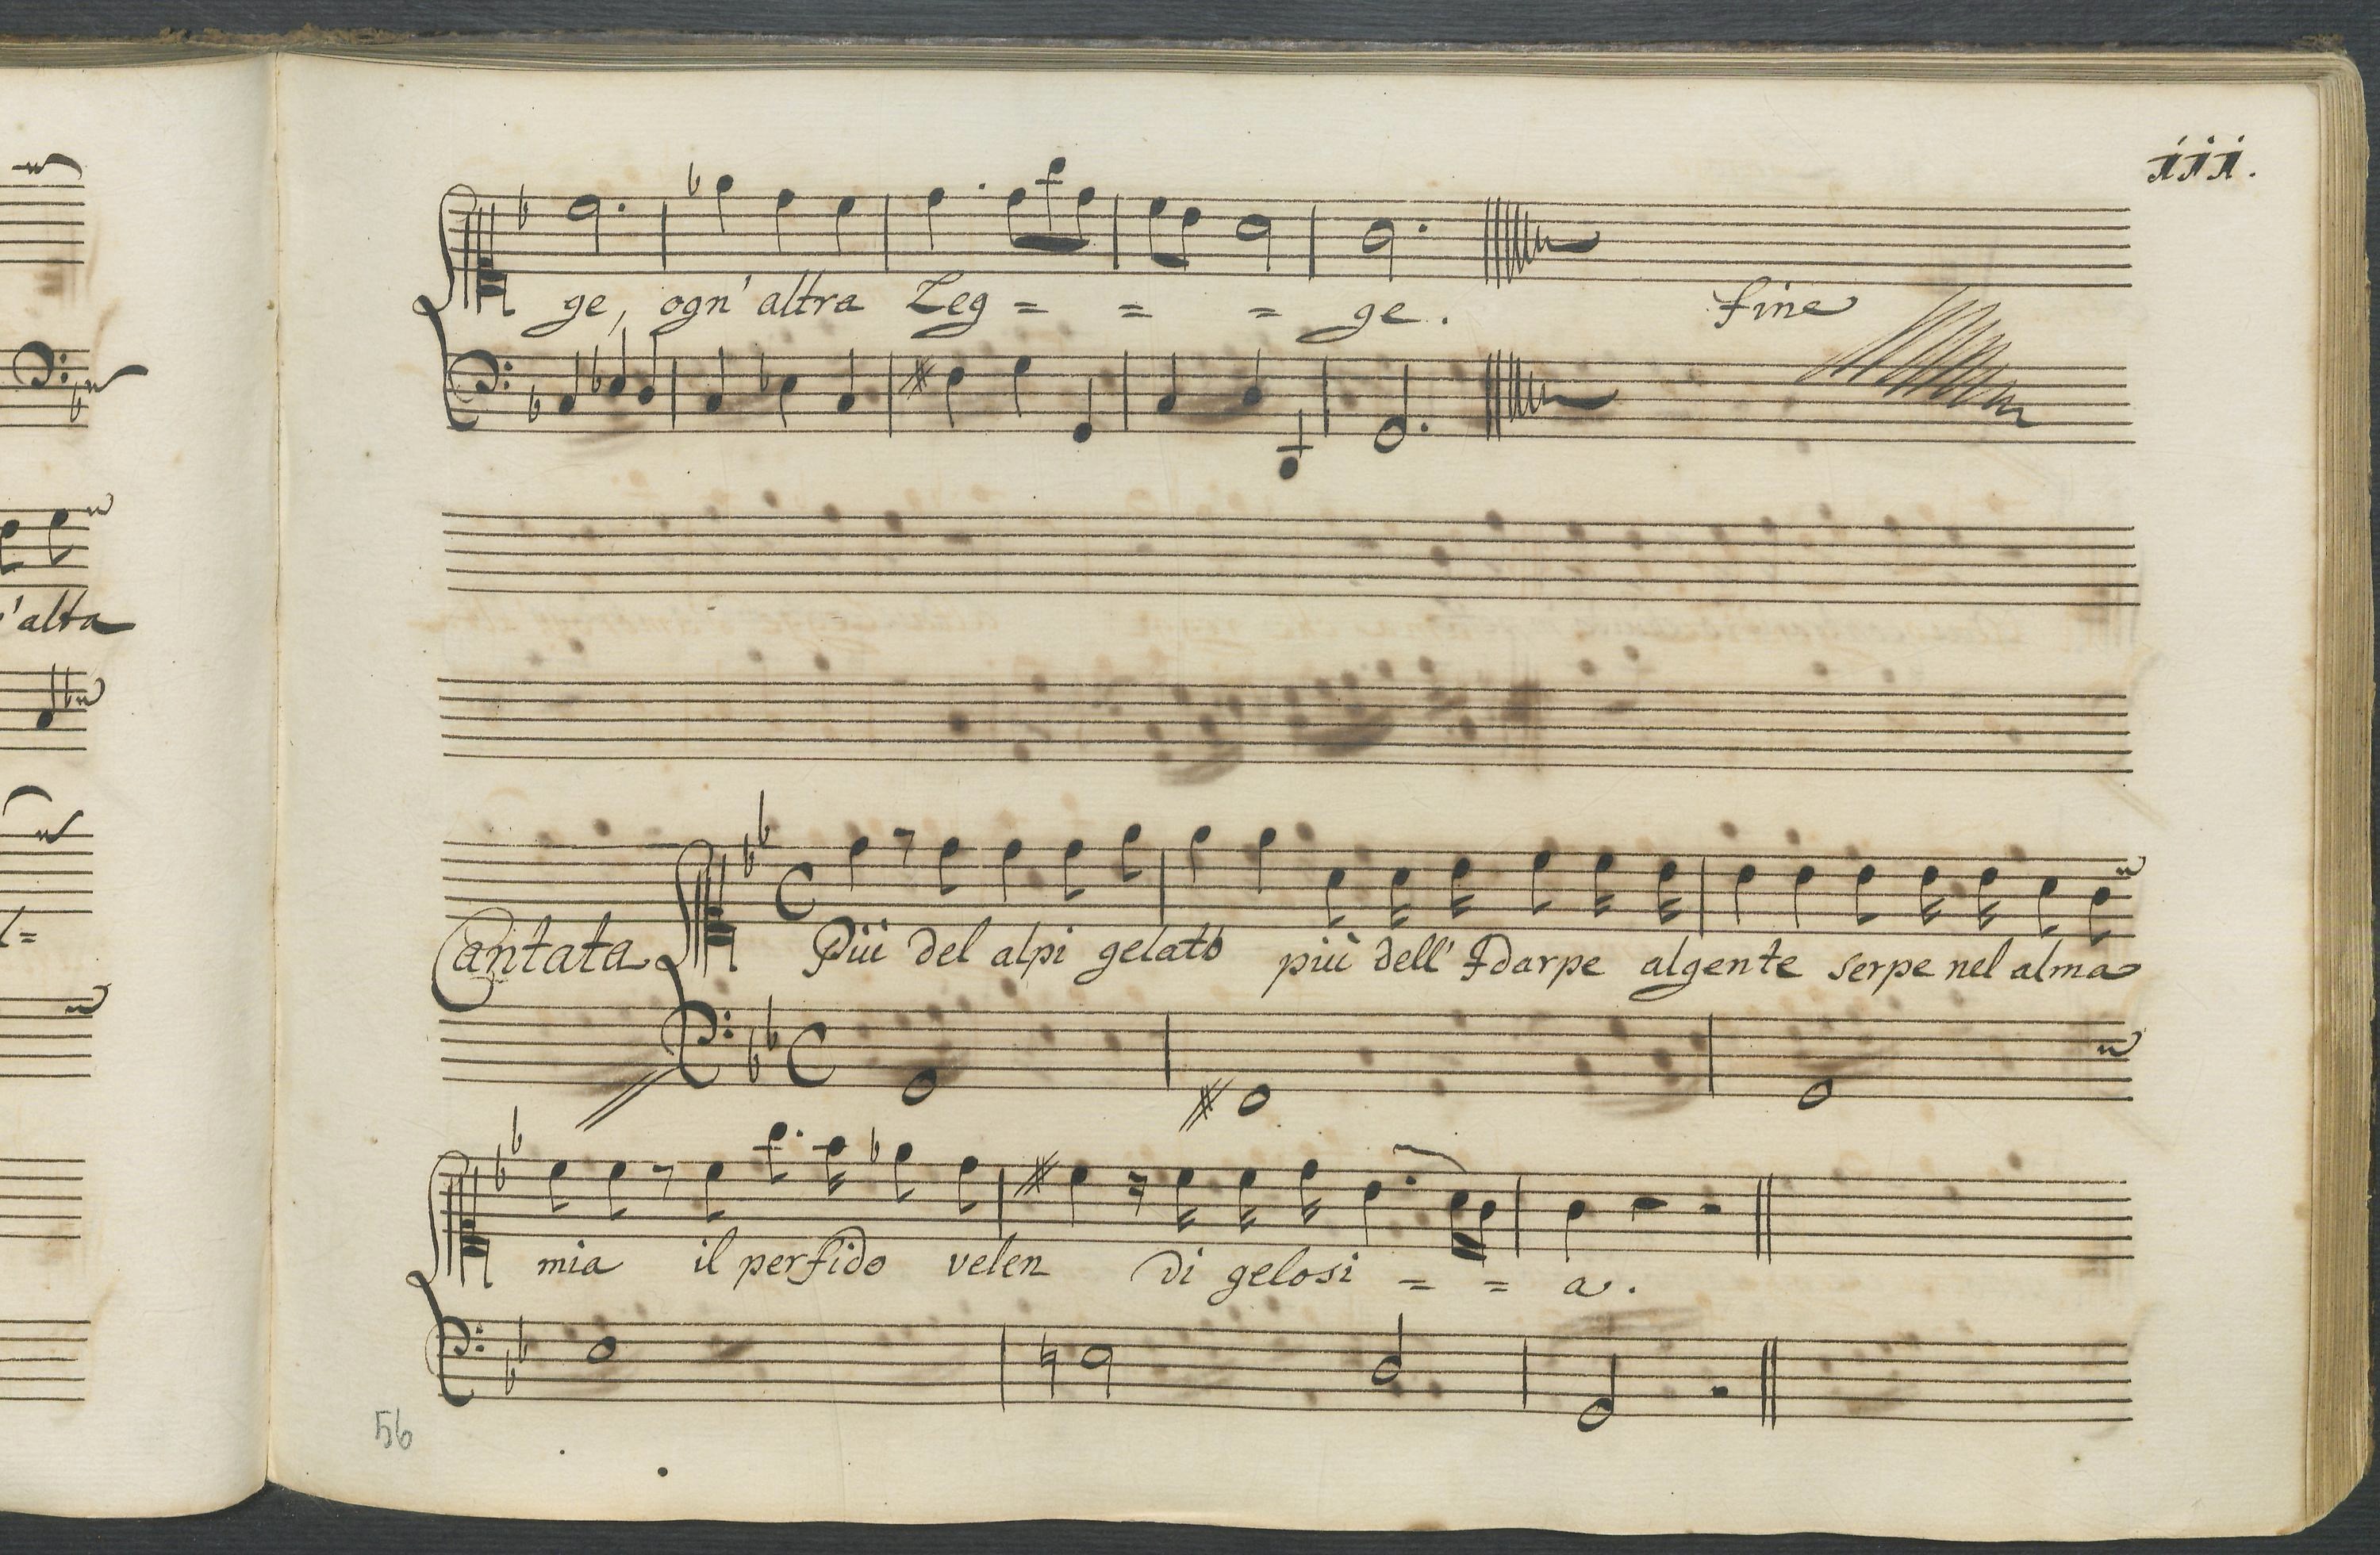 iii.
ge, ogn' altra Leg = = = ge. fine
Cantata Più del alpi gelato più dell' Idarpe algente serpe nel alma
mia il perfido velen di gelosi = = a.
56
'alta
l=